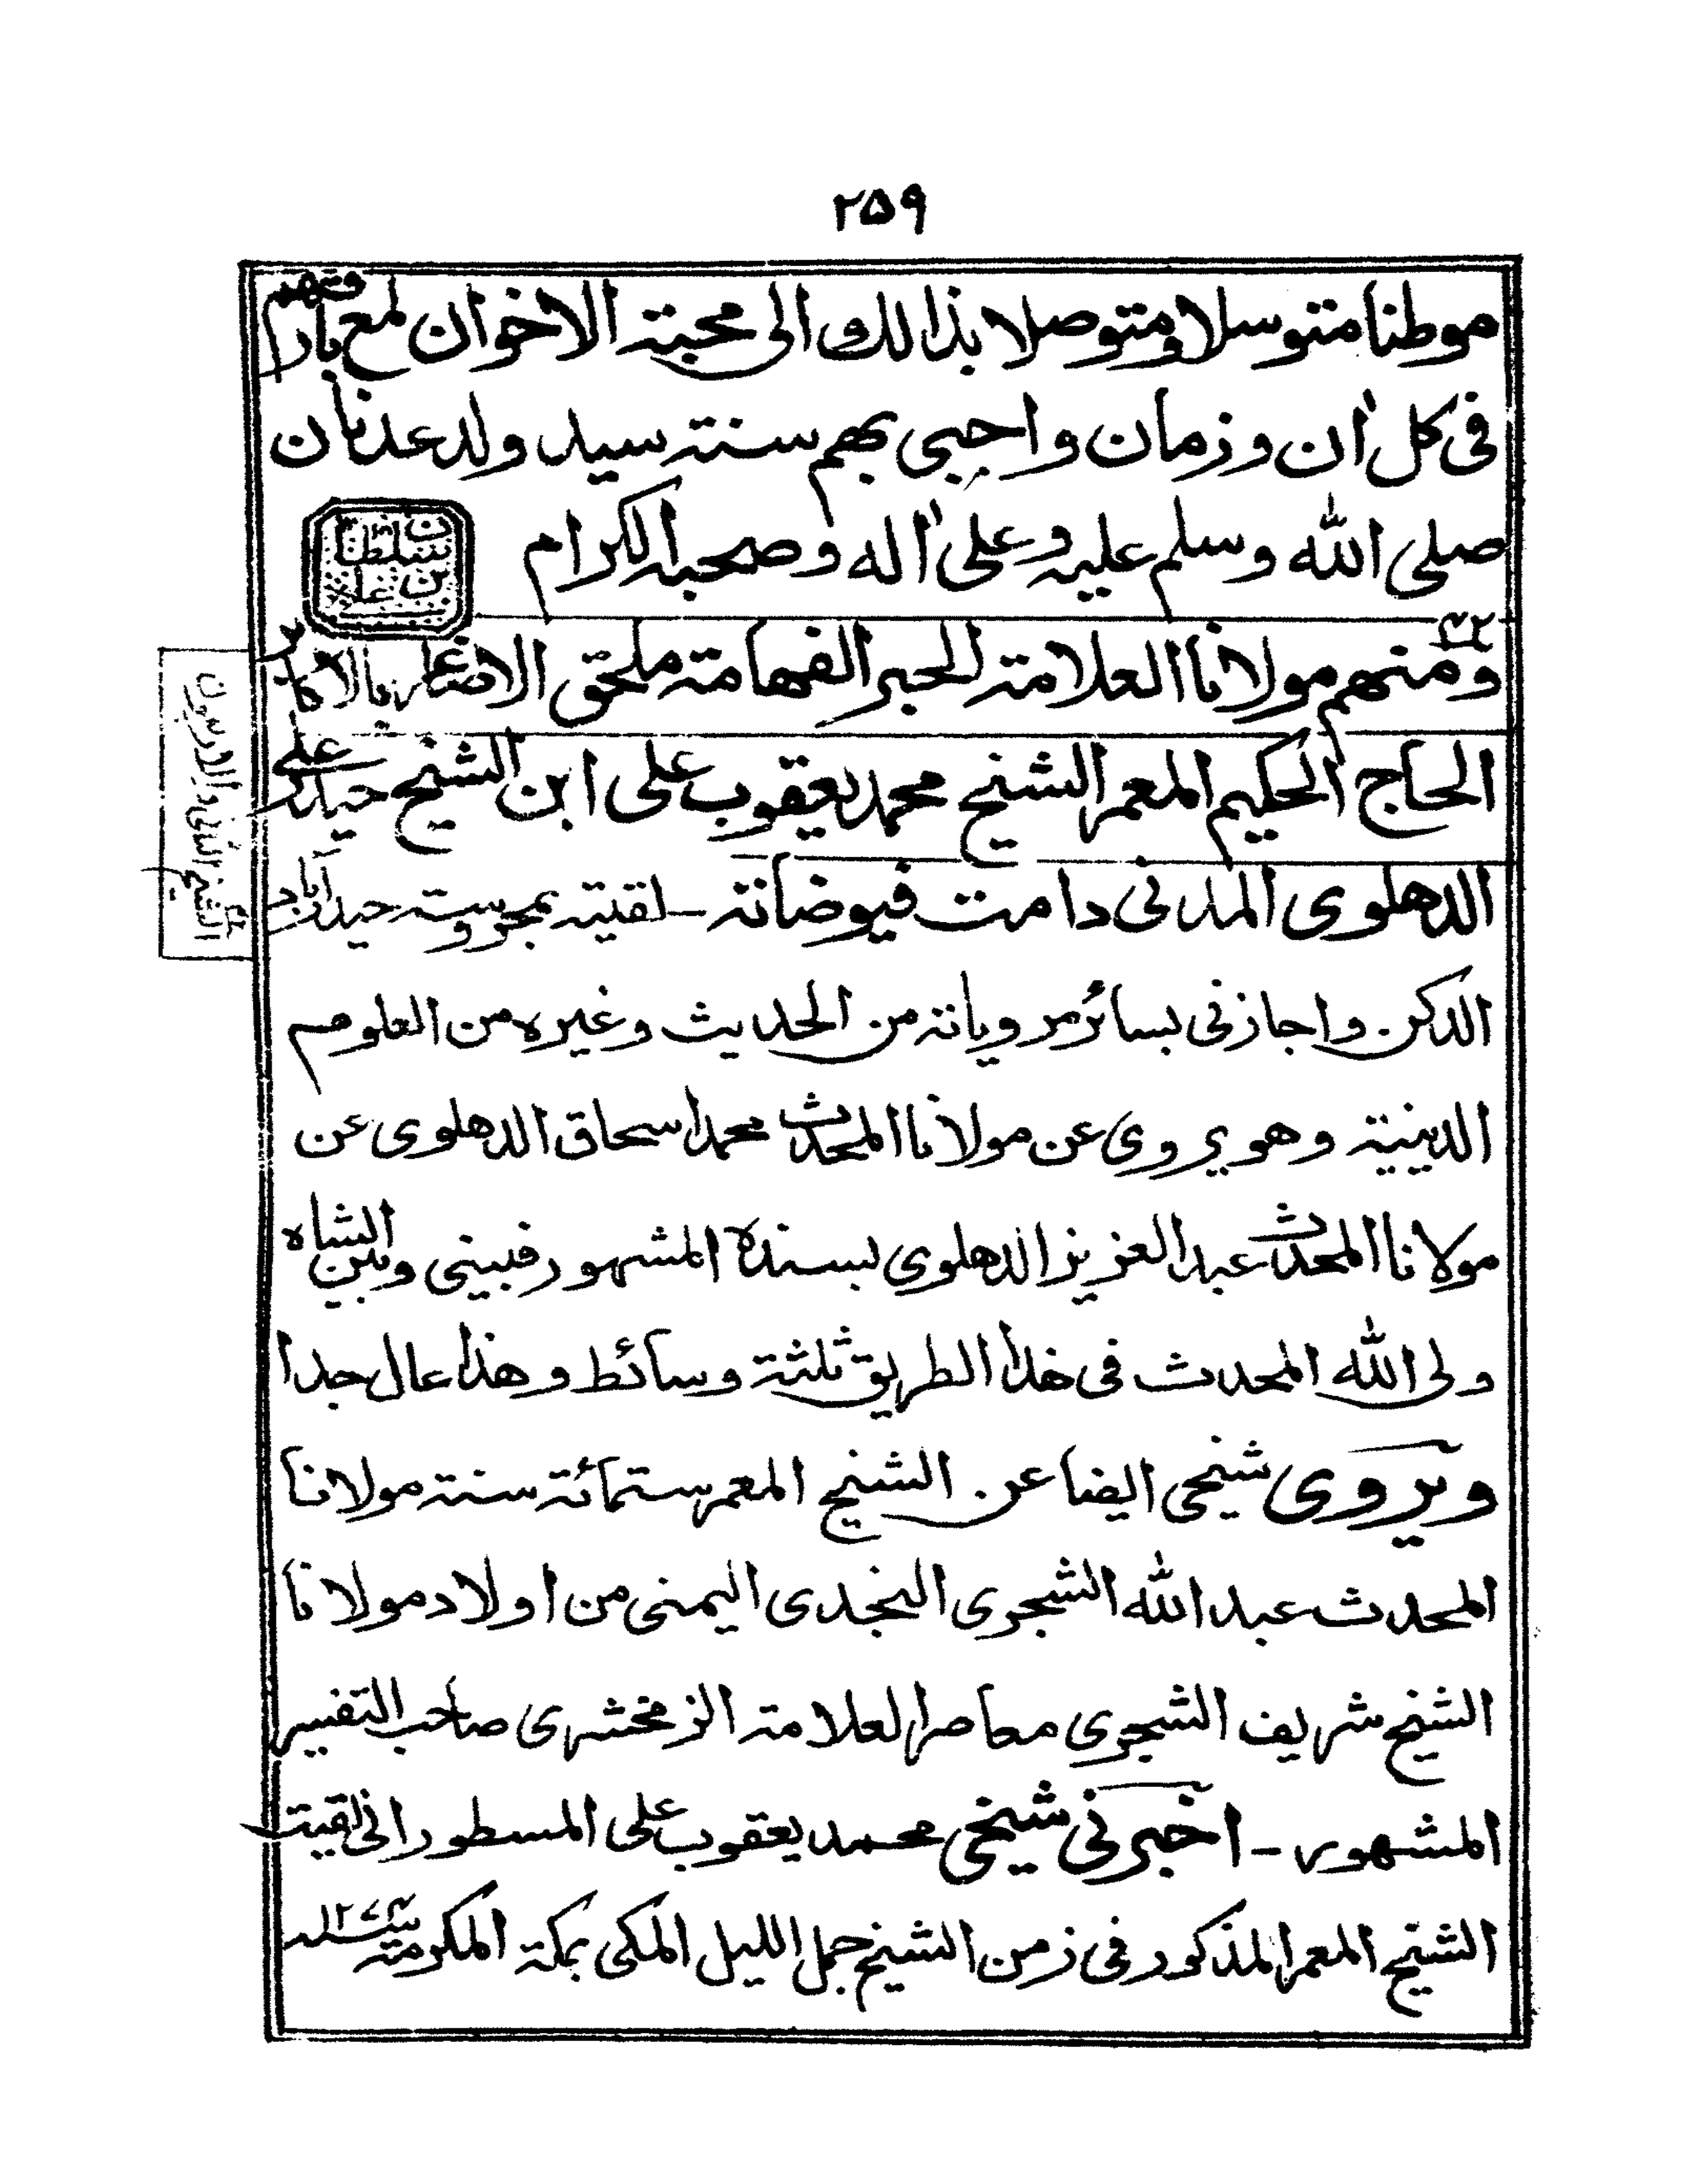 ۲۵۹
موطنا متوسلا ومتوصلا بذالك الى محبة الاخوان لمع بارقهم
فى كل اٰن و زمان واحيى بهم سنة سيد ولد عدنان
صلى الله وسلم عليه وعلىٰ اٰله وصحبه الكرام
سلطان
بن على
۴۲
ومنهم مولانا العلامة الحبر الفهامة ملحق الاصاغر بالاكابر
الحاج الحكيم المعمر الشيخ محمد يعقوب على ابن الشيخ حيدر على
الدهلوى المدنى دامت فيوضاته ـ لقيته بمحروسة حيدرآباد
الشيخ الثانى والاربعون
الدكن واجازنى بسائر مروياته من الحديث وغيره من العلوم
الدينية وهو يروى عن مولانا المحدث محمد اسحاق الدهلوى عن
مولانا المحدث عبد العزيز الدهلوى بسنده المشهور فبينى وبين الشاه
ولى الله المحدث فى هذا الطريق ثلثة وسائط وهذا عال جدا
ويروى شيخى ايضا عن الشيخ المعمر ستمائة سنة مولانا
المحدث عبد الله الشجرى النجدى اليمنى من اولاد مولانا
الشيخ شريف الشجرى معاصر العلامة الزمخشرى صاحب التفسير
المشهور ـ اخبرنى شيخى محمد يعقوب على المسطور انى لقيت
الشيخ المعمر المذكور فى زمن الشيخ جمل الليل المكى بمكة المكرمة سنة